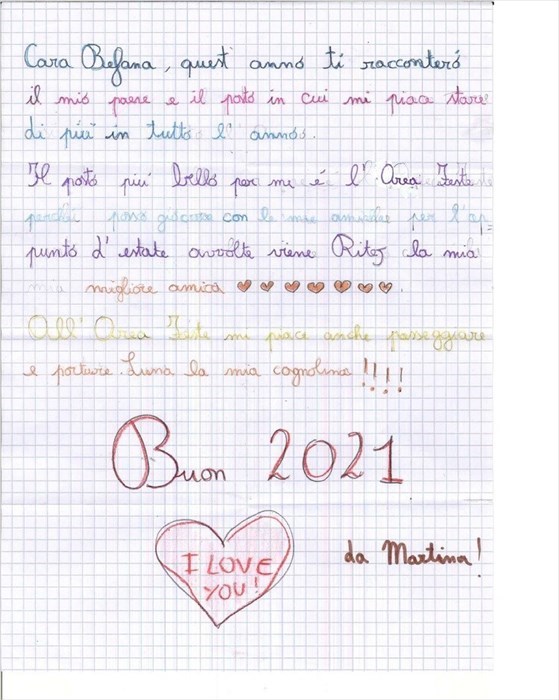 Cara Befana, quest anno ti racconteró
il mio paese e il posto in cui mi piace stare
di più in tutto l' anno.
Il posto piu' bello per me é l' Area Feste
perché posso giocare con le mie amiche per l'ap
punto d' estate avvolte viene la mia
mia migliore amica
All' Area Feste mi piace anche passeggiare
e portare Luna la mia cagnolina!!!!
Buon 2021
I LOVE
YOU!
da Martina!